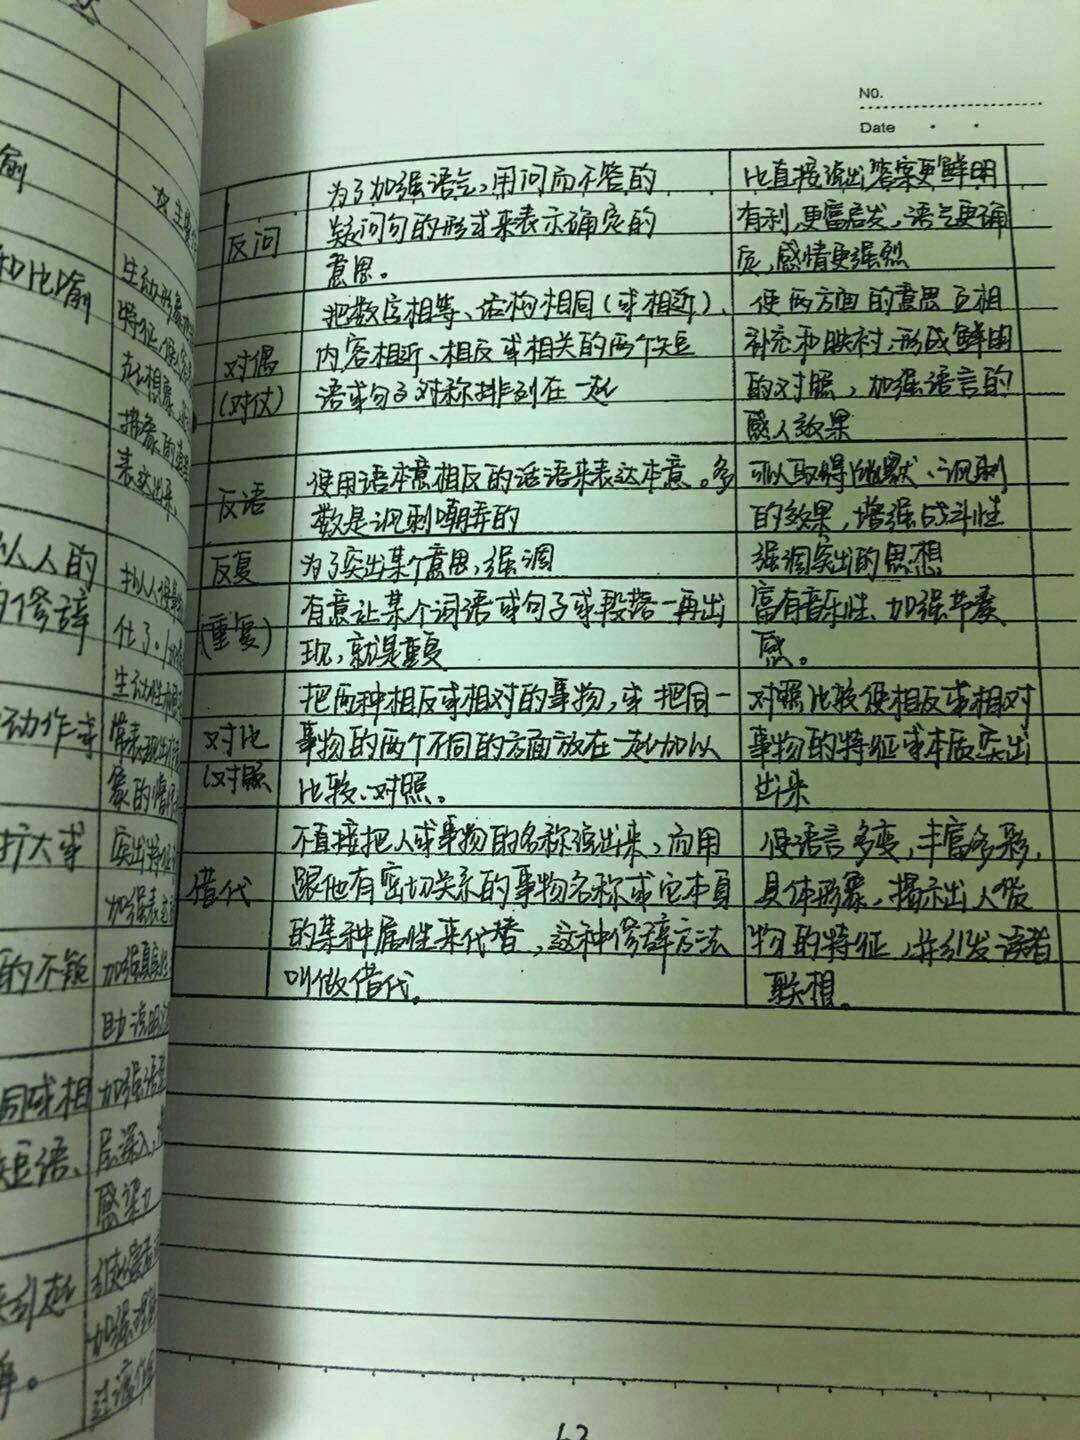 NO.
Date
反问
为了加强语气,用问而不答的
疑问句的形式来表示确定的
意思。
比直接说出答案更鲜明
有利,更富启发,语气更确
定,感情更强烈
对偶
(对仗)
把数字相等、结构相同(或相近)、
内容相近、相反或相关的两个短
语或句子对称排列在一起
使两方面的意思互相
补充和映衬,形成鲜明
的对照,加强语言的
感人效果
反语
使用语本意相反的话语来表达本意。多
数是讽刺嘲弄的
可以取得幽默、讽刺
的效果,增强战斗性
反复
(重复)
为了突出某个意思,强调
有意让某个词语或句子或段落一再出
现,就是重复
强调突出的思想
富有音乐性、加强节奏
感。
对比
(对照
把两种相反或相对的事物,或把同一
事物的两个不同的方面放在一起加以
比较、对照。
对照比较使相反或相对
事物的特征或本质突出
出来
借代
不直接把人或事物的名称说出来,而用
跟他有密切关系的事物名称或它本身
的某种属性来代替,这种修辞方法
叫做借代。
使语言多变,丰富多彩,
具体形象,揭示出人
物的特征,并引发读者
联想。
和比喻
生动形象
特征
的修辞
拟人
动作或
象的情
扩大或
突出特征
加强表达
的不疑
加强真实
助说明
同或相
短语、
加强语
层深入
感染力
来引起
加强